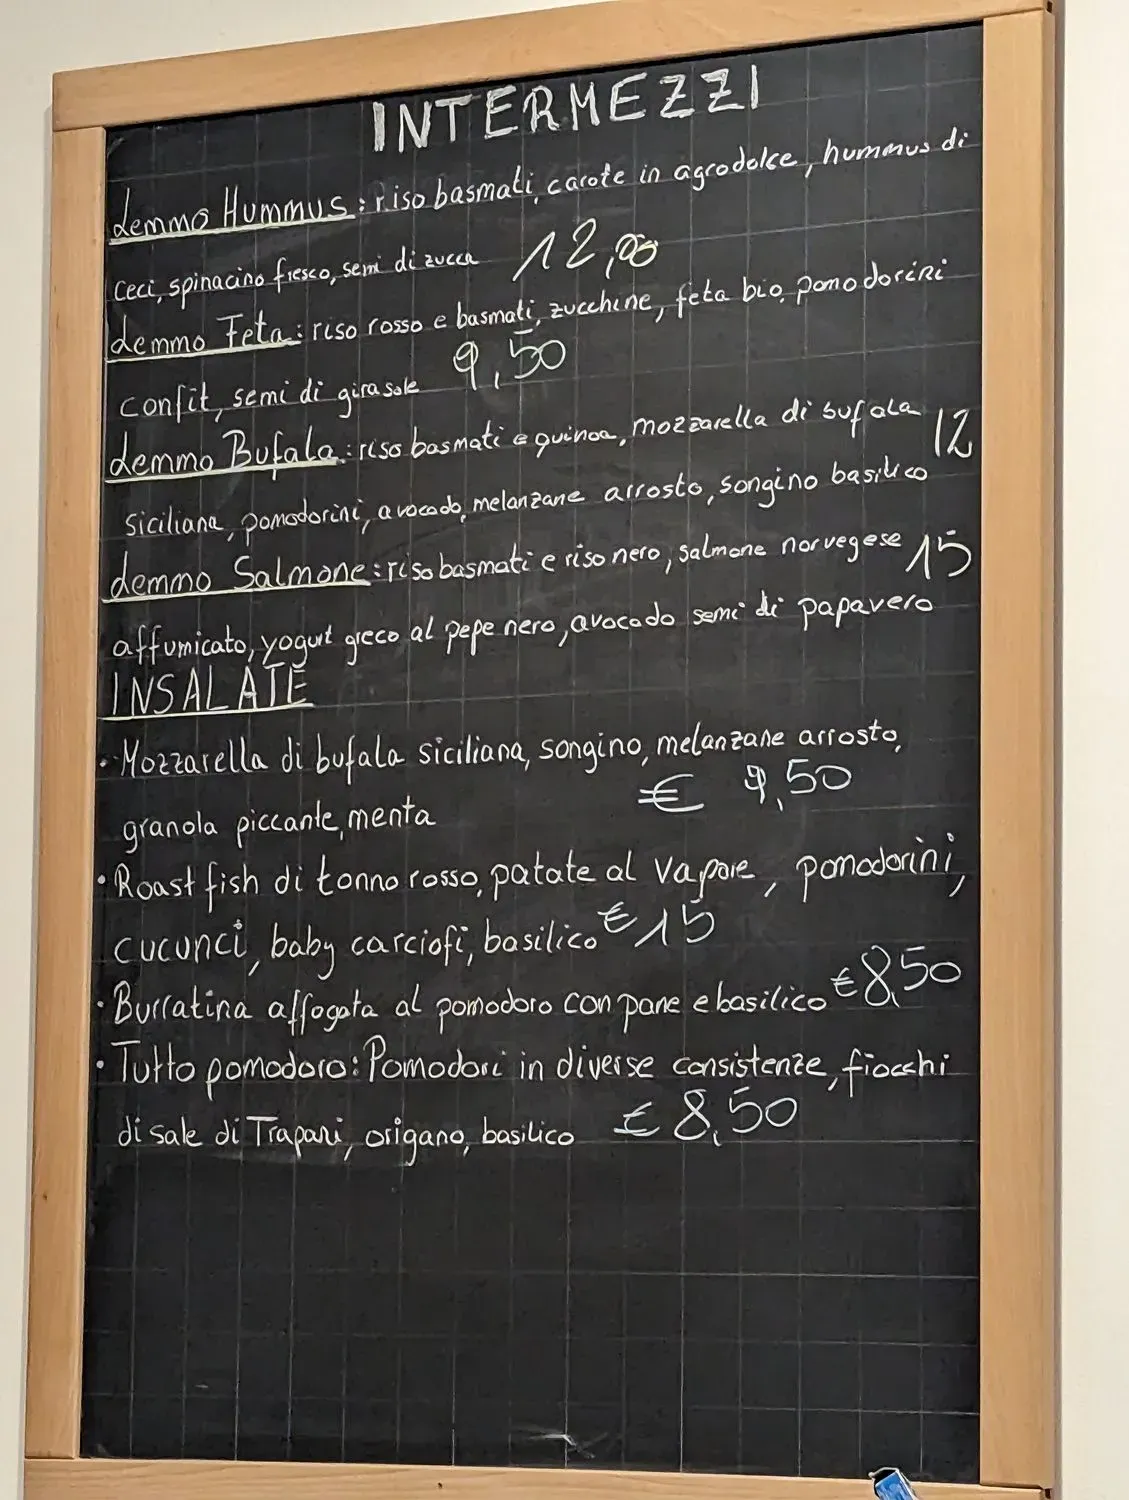 INTERMEZZI
demmo Hummus: riso basmati, carote in agrodolce, hummus di
ceci, spinacino fresco, semi di zucca 12,00
demmo Feta: riso rosso e basmati, zucchine, feta bio, pomodorini
confit, semi di girasole 9,50
demmo Bufala: riso basmati e quinoa, mozzarella di bufala 12
siciliana, pomodorini, avocado, melanzane arrosto, songino basilico
demmo Salmone: riso basmati e riso nero, salmone norvegese 15
affumicato, yogurt greco al pepe nero, avocado semi di papavero
INSALATE
• Mozzarella di bufala siciliana, songino, melanzane arrosto,
granola piccante, menta € 9,50
• Roast fish di tonno rosso, patate al vapore, pomodorini,
cucunci, baby carciofi, basilico € 15
• Burratina affogata al pomodoro con pane e basilico € 8,50
• Tutto pomodoro: Pomodori in diverse consistenze, fiocchi
di sale di Trapani, origano, basilico € 8,50